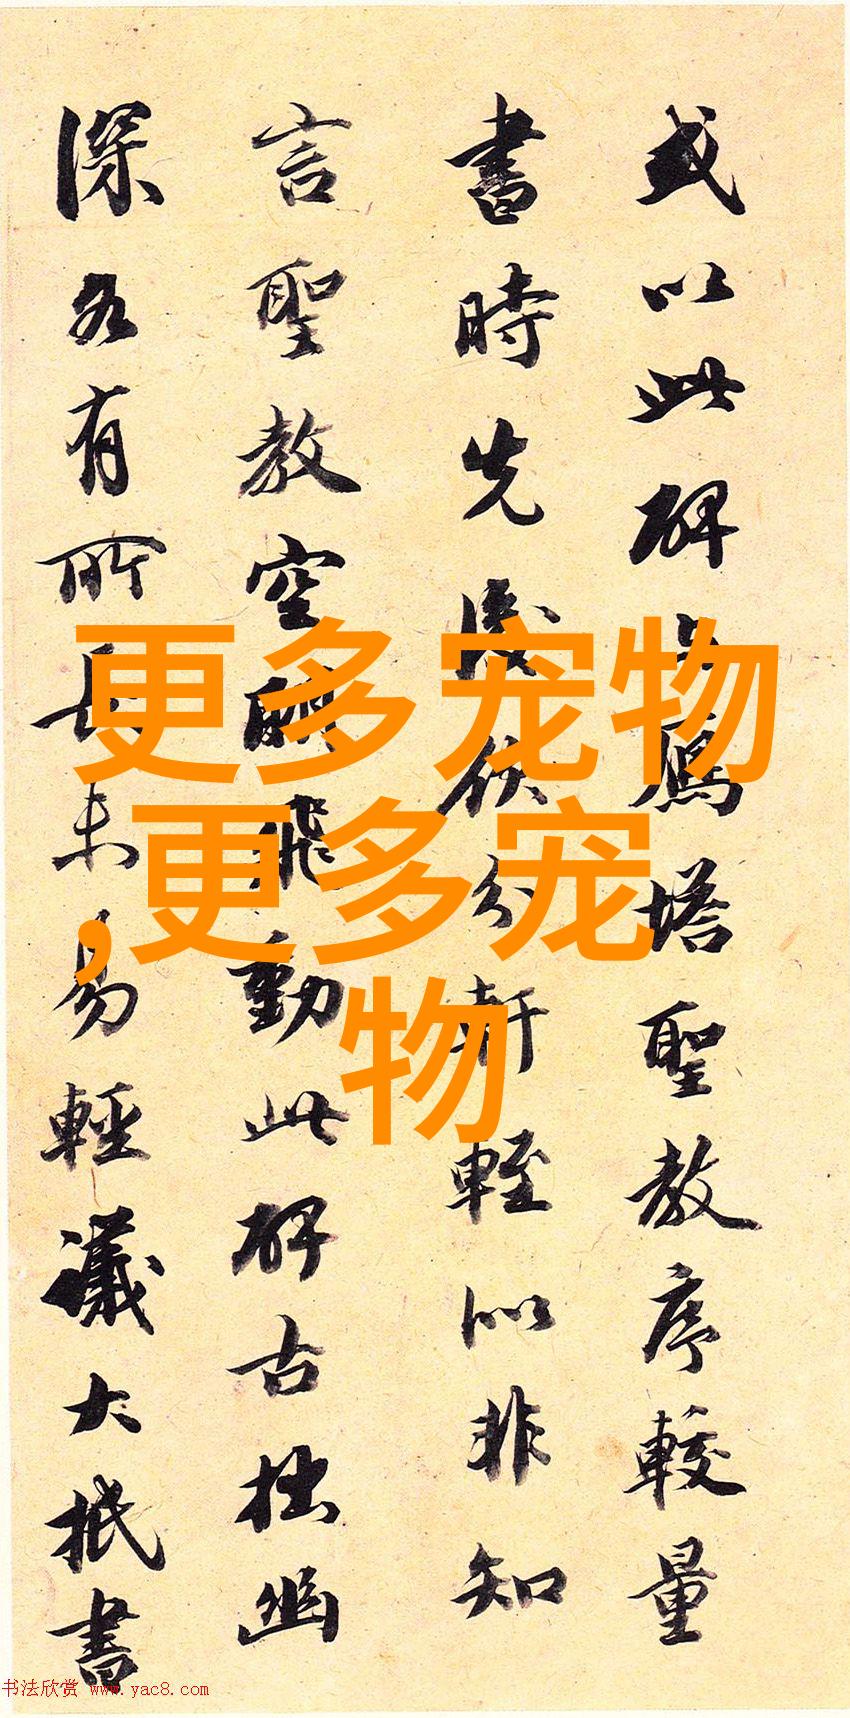 或以此碑与鴈塔聖教序較量
書時先後分軒輊似非知
言聖教空飛動此碑古拙幽
深各有所長未易輕議大抵書
更多宠物
,更多宠
物
书法欣赏 www.yac8.com